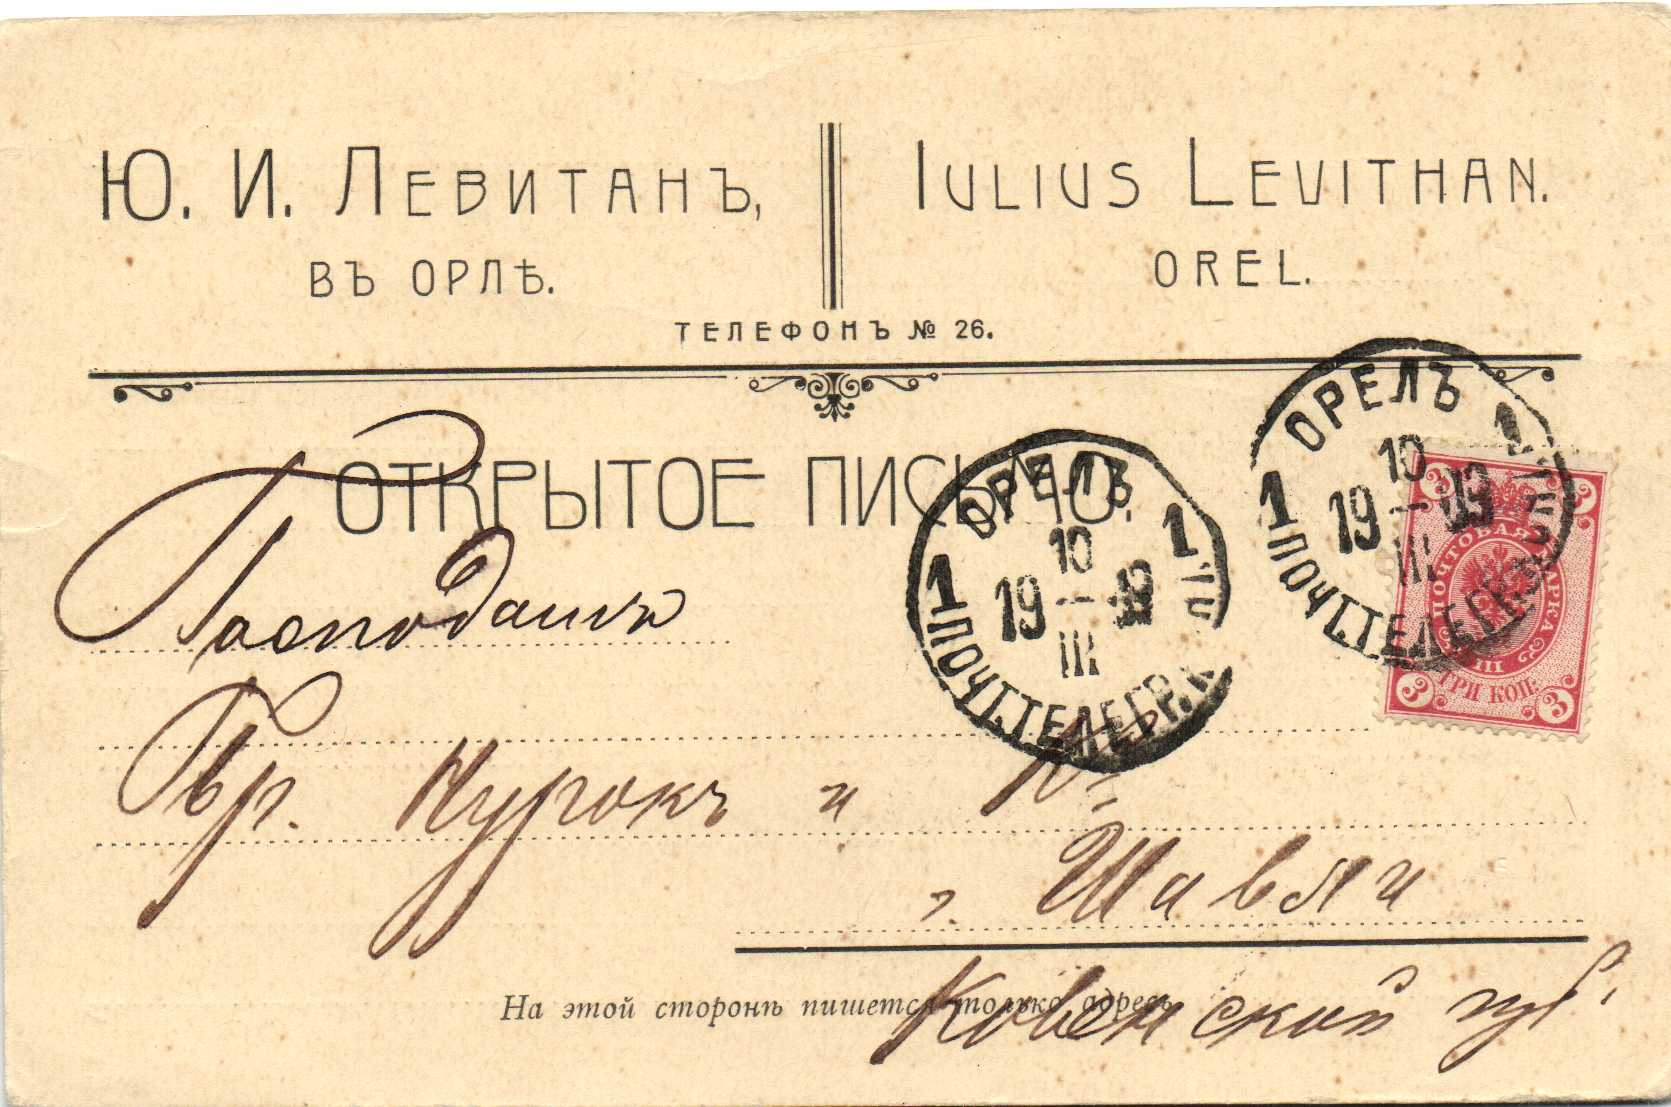 Ю. И. Левитанъ,
въ Орлѣ.
Iulius Levithan.
Orel.
Телефонъ № 26.
ОТКРЫТОЕ ПИСЬМО.
ОРЕЛЪ
1 1
10
19 — 03
III
ПОЧТ.ТЕЛЕГР.К
ОРЕЛЪ
1 1
10
19 — 03
III
ПОЧТ.ТЕЛЕГР.К
ПОЧТОВАЯ МАРКА
ТРИ КОП.
3 3 3 3
Господамъ
Бр. Нурокъ и Кº
г. Шавли
Ковенской губ.
На этой сторонѣ пишется только адресъ.